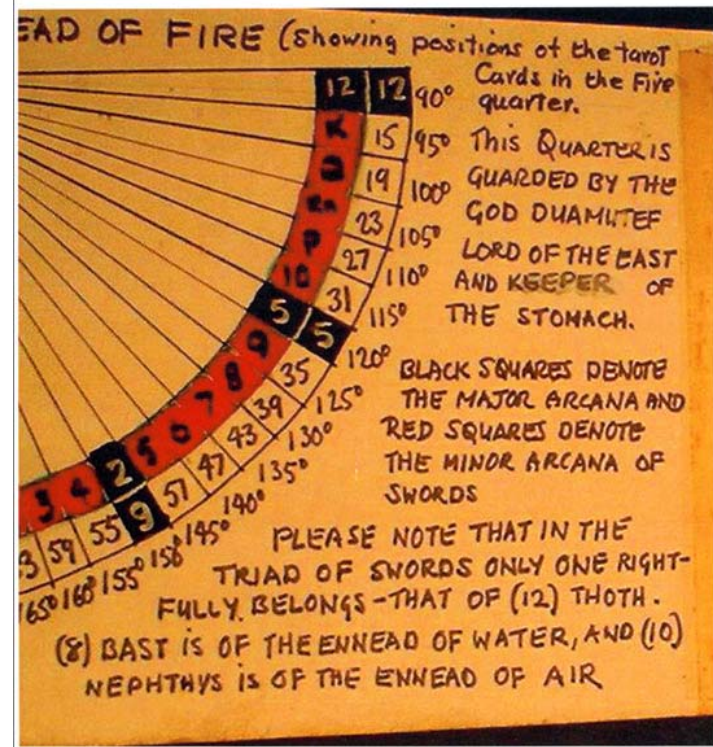 EAD OF FIRE (showing positions of the tarot
Cards in the Fire
quarter.
12 12 90°
K 15 95°
Q 19 100°
Kn 23 105°
P 27 110°
10 31 115°
5 5 120°
9 35 125°
8 39 130°
7 43 135°
6 47 140°
5 51 145°
2 9 150°
4 55 155°
3 59 160°
3 165°
THIS QUARTER IS
GUARDED BY THE
GOD DUAMUTEF
LORD OF THE EAST
AND KEEPER OF
THE STOMACH.
BLACK SQUARES DENOTE
THE MAJOR ARCANA AND
RED SQUARES DENOTE
THE MINOR ARCANA OF
SWORDS
PLEASE NOTE THAT IN THE
TRIAD OF SWORDS ONLY ONE RIGHT-
FULLY BELONGS - THAT OF (12) THOTH.
(8) BAST IS OF THE ENNEAD OF WATER, AND (10)
NEPHTHYS IS OF THE ENNEAD OF AIR